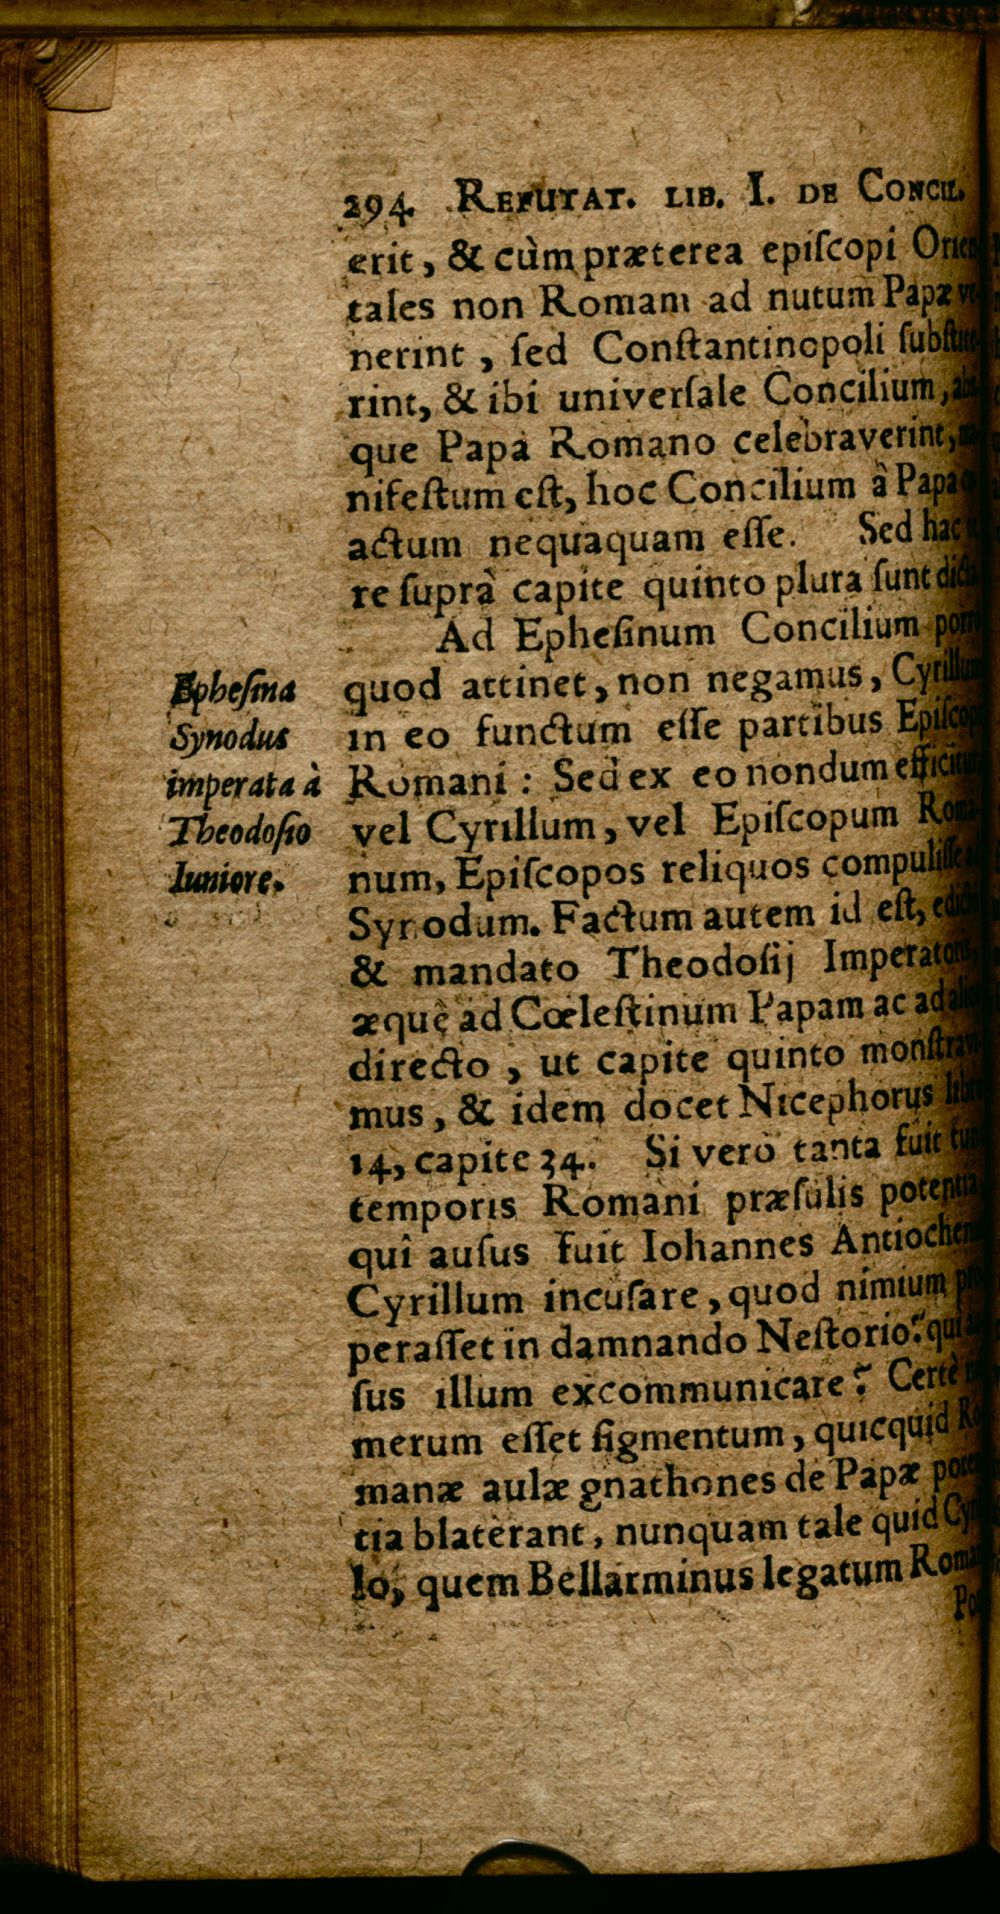 294 REFUTAT. LIB. I. DE CONCIL.
erit, & cùm præterea epiſcopi Orien
tales non Romam ad nutum Papæ ve-
nerint, ſed Conſtantinopoli ſubſtite-
rint, & ibi univerſale Concilium, abs-
que Papa Romano celebraverint, ma-
nifeſtum eſt, hoc Concilium â Papa
actum nequaquam eſſe. Sed hac
re ſuprà capite quinto plura ſunt dicta
Ad Epheſinum Concilium porro
quod attinet, non negamus, Cyrillum
in eo functum eſſe partibus Epiſcopi
Romani: Sed ex eo nondum efficitur,
vel Cyrillum, vel Epiſcopum Roma-
num, Epiſcopos reliquos compuliſſe ad
Synodum. Factum autem id eſt, edicto
& mandato Theodoſij Imperatoris,
æquè ad Cœleſtinum Papam ac ad alios
directo, ut capite quinto monſtravi-
mus, & idem docet Nicephorus libro
14, capite 34. Si verò tanta fuit tum
temporis Romani præſulis potentia,
quî auſus fuit Iohannes Antiochenus
Cyrillum incuſare, quod nimium pro-
peraſſet in damnando Neſtorio? qui au-
ſus illum excommunicare? Certè ni
merum eſſet figmentum, quicquid Ro-
manæ aulæ gnathones de Papæ poten-
tia blaterant, nunquam tale quid Cyril-
lo, quem Bellarminus legatum Romani
Epheſina
Synodus
imperata à
Theodoſio
Iuniore.